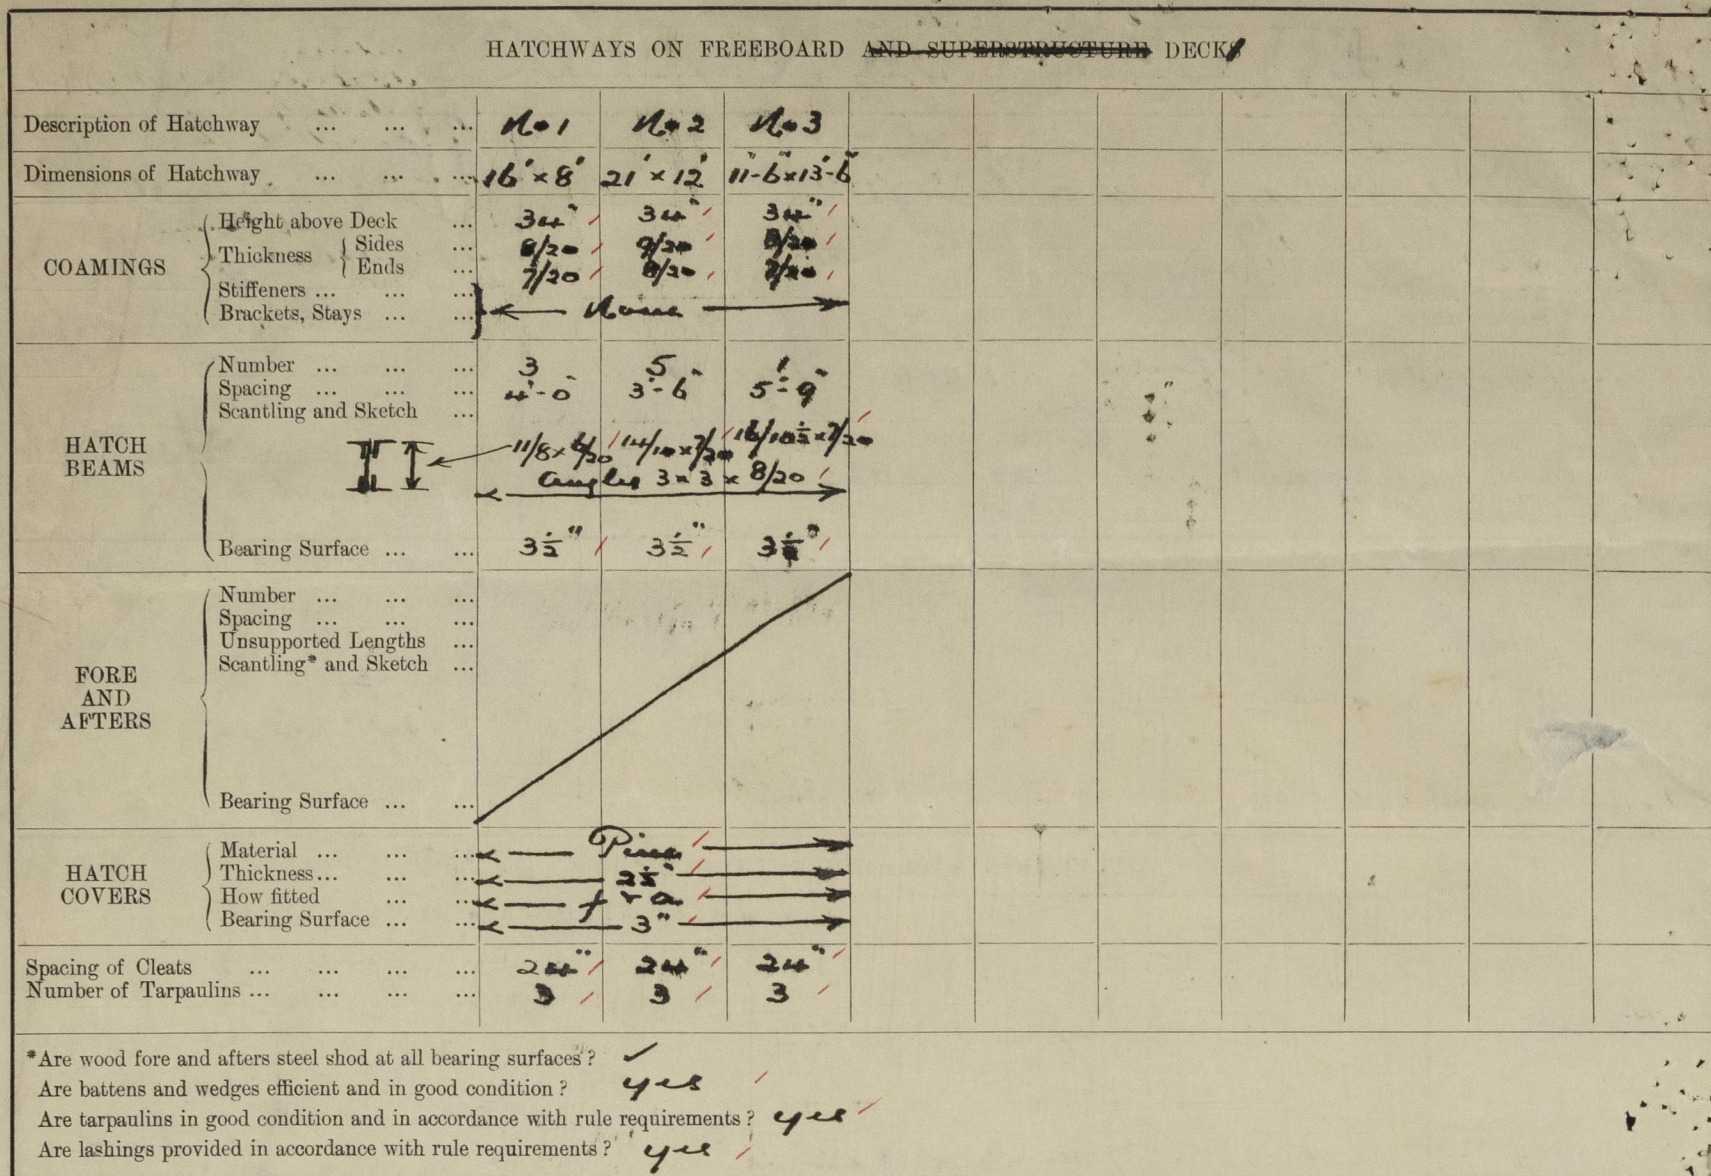 HATCHWAYS ON FREEBOARD AND SUPERSTRUCTURE DECKS
Description of Hatchway ... ... ... No 1 No 2 No 3
Dimensions of Hatchway ... ... ... 16' × 8' 21' × 12' 11'-6" × 13'-6"
COAMINGS
Height above Deck ... 34" 34" 34"
Thickness
Sides ... 8/20 9/20 8/20
Ends ... 7/20 8/20 7/20
Stiffeners ... ... ...
Brackets, Stays ... ... None
HATCH BEAMS
Number ... ... ... 3 5 1
Spacing ... ... ... 4'-0" 3'-6" 5'-9"
Scantling and Sketch ...
11/8 × 6/20 14/10 × 7/20 16/10½ × 7/20
Angles 3 × 3 × 8/20
Bearing Surface ... ... 3½" 3½" 3½"
FORE AND AFTERS
Number ... ... ...
Spacing ... ... ...
Unsupported Lengths ...
Scantling* and Sketch ...
Bearing Surface ... ...
HATCH COVERS
Material ... ... ... Pine
Thickness... ... ... 2½"
How fitted ... ... f & a
Bearing Surface ... ... 3"
Spacing of Cleats ... ... ... ... 24" 24" 24"
Number of Tarpaulins ... ... ... ... 3 3 3
*Are wood fore and afters steel shod at all bearing surfaces? ✓
Are battens and wedges efficient and in good condition? yes
Are tarpaulins in good condition and in accordance with rule requirements? yes
Are lashings provided in accordance with rule requirements? yes